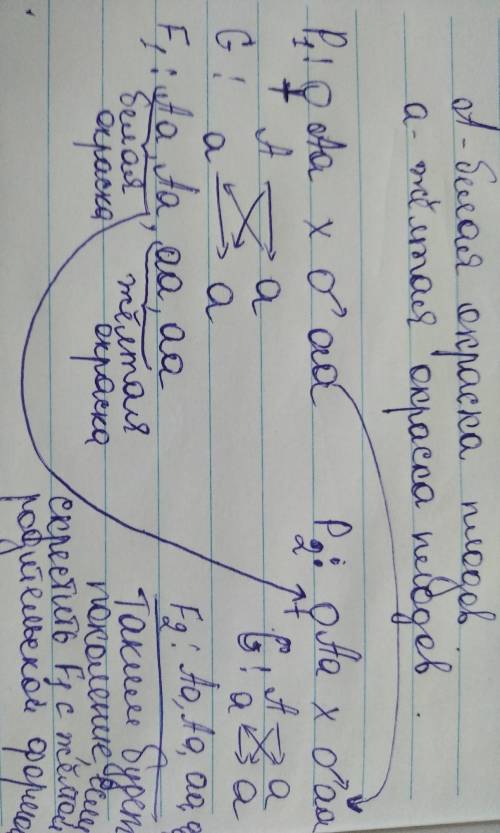 А - белая окраска плодов
а - жёлтая окраска плодов.
P₁: ♀ Аа х ♂ аа
G: А а
а а
F₁: Аа, Аа, аа, аа
белая окраска, жёлтая окраска
P₂: ♀ Аа х ♂ аа
G: А а
а а
F₂: Аа, Аа, аа,
Таким будет
поколение, если
скрестить F₁ с жёлтой
родительской формой